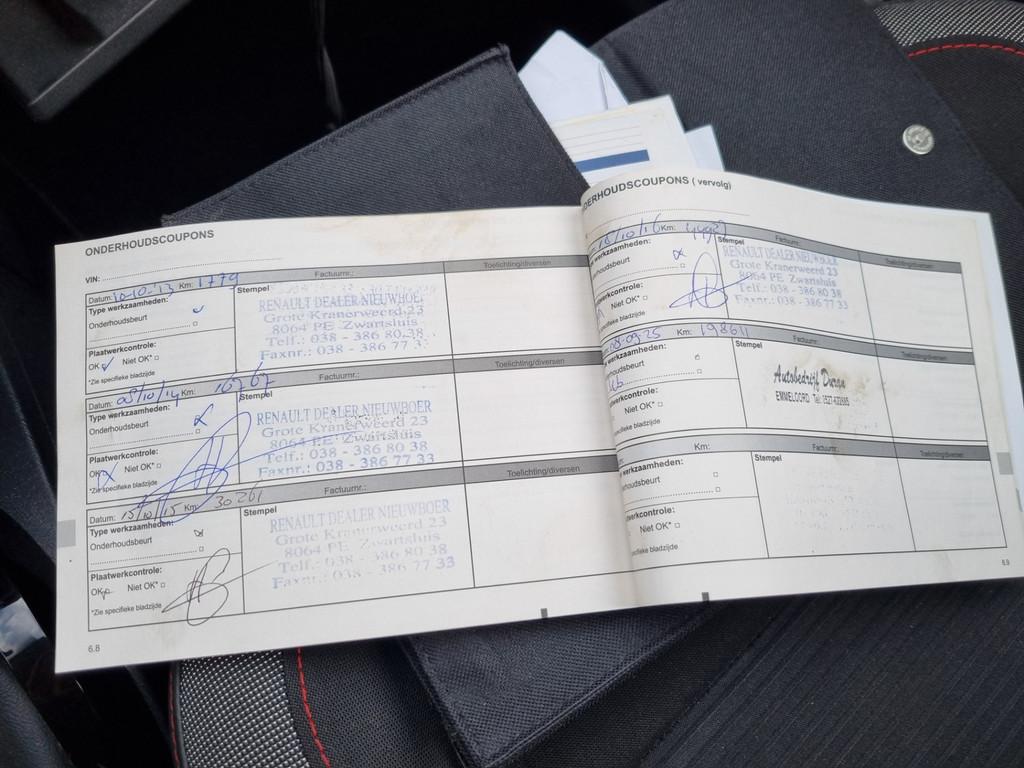 ONDERHOUDSCOUPONS
VIN:
Datum: 10-10-13 Km: 1779 Factuurnr.: Toelichting/diversen
Type werkzaamheden: Stempel
Onderhoudsbeurt
RENAULT DEALER NIEUWBOER
Grote Kranerweerd 23
8064 PE Zwartsluis
Telf.: 038 - 386 80 38
Faxnr.: 038 - 386 77 33
Plaatwerkcontrole:
OK Niet OK*
*Zie specifieke bladzijde
Datum: 08/10/14 Km: 16767 Factuurnr.: Toelichting/diversen
Type werkzaamheden: Stempel
Onderhoudsbeurt
RENAULT DEALER NIEUWBOER
Grote Kranerweerd 23
8064 PE Zwartsluis
Telf.: 038 - 386 80 38
Faxnr.: 038 - 386 77 33
Plaatwerkcontrole:
OK Niet OK*
*Zie specifieke bladzijde
Datum: 15/10/15 Km: 30261 Factuurnr.: Toelichting/diversen
Type werkzaamheden: Stempel
Onderhoudsbeurt
RENAULT DEALER NIEUWBOER
Grote Kranerweerd 23
8064 PE Zwartsluis
Telf.: 038 - 386 80 38
Faxnr.: 038 - 386 77 33
Plaatwerkcontrole:
OK Niet OK*
*Zie specifieke bladzijde
6.8
DERHOUDSCOUPONS ( vervolg)
18/10/16 Km: Factuurnr.: Toelichting/diversen
werkzaamheden: Stempel
houdsbeurt
RENAULT DEALER NIEUWBOER
Grote Kranerweerd 23
8064 PE Zwartsluis
Telf.: 038 - 386 80 38
Faxnr.: 038 - 386 77 33
erkcontrole:
Niet OK*
specifieke bladzijde
08-09-25 Km: 198611 Factuurnr.: Toelichting/diversen
werkzaamheden: Stempel
houdsbeurt
Autobedrijf Duran
EMMELOORD
erkcontrole:
Niet OK*
specifieke bladzijde
Km: Factuurnr.: Toelichting/diversen
werkzaamheden: Stempel
houdsbeurt
erkcontrole:
Niet OK*
specifieke bladzijde
6.9